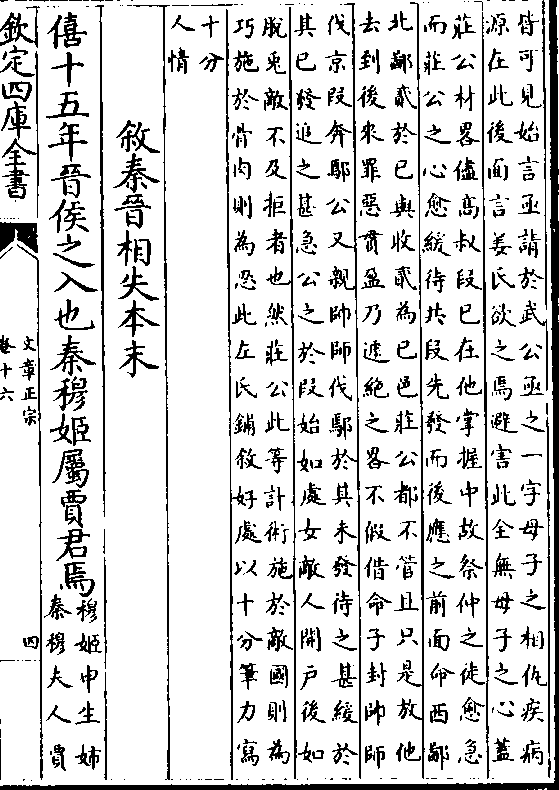 皆可見始言亟請於武公亟之一字母子之相仇疾病
源在此後面言姜氏欲之焉避害此全無母子之心蓋
莊公材畧儘高叔段已在他掌握中故祭仲之徒愈急
而莊公之心愈緩待共段先發而後應之前面命西鄙
北鄙貳於已與收貳為已邑莊公都不管且只是放他
去到後來罪惡貫盈乃遽絶之畧不假借命子封帥師
伐京段奔鄢公又親帥師伐鄢於其未發待之甚緩於
其已發追之甚急公之於段始如處女敵人開戶後如
脫兎敵不及拒者也然莊公此等計術施於敵國則為
巧施於骨肉則為忍此左氏鋪敘好處以十分筆力寫
十分
人情
敘秦晉相失本末
僖十五年晉侯之入也秦穆姬屬賈君焉
穆姬申生姊
秦穆夫人賈
欽定四庫全書
文章正宗
卷十六
四